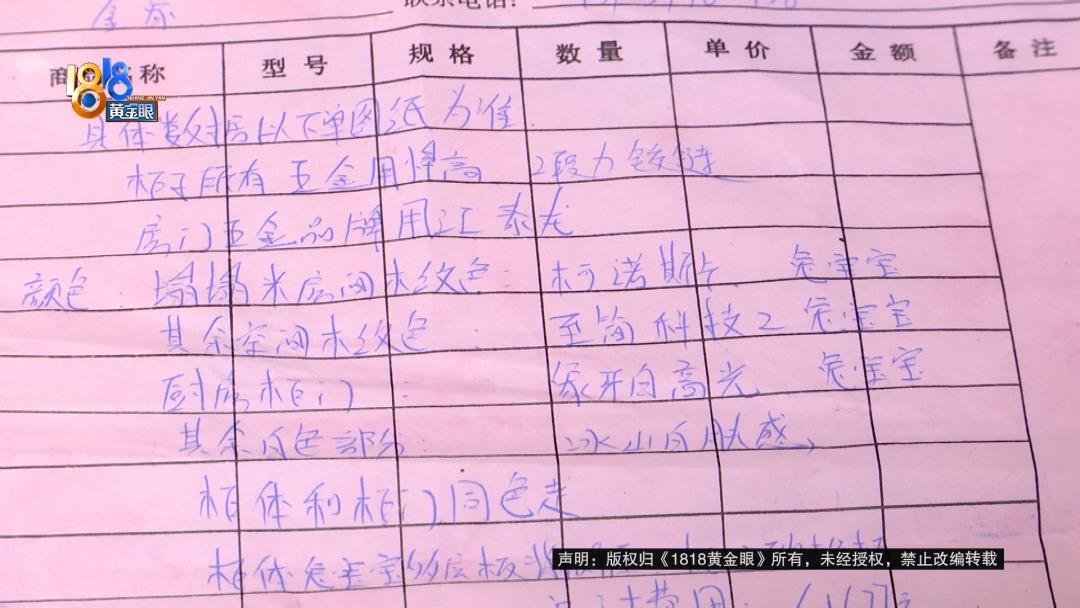 联系电话:
商 名称 型号 规格 数量 单价 金额 备注
1818
HUANG JIN YAN
黄金眼
具体数据以下单图纸为准
柜子所有五金用悍高 2段力铰链
房门五金品牌用汇泰龙
颜色 榻榻米房间木纹色 柯诺斯 兔宝宝
其余空间木纹色 至简科技2 兔宝宝
厨房柜门 象牙白高光 兔宝宝
其余白色部分 冰山白肤感
柜体和柜门同色走
柜体兔宝宝多层板
声明：版权归《1818黄金眼》所有，未经授权，禁止改编转载
计费用: